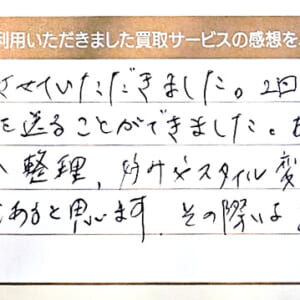 利用いただきました買取サービスの感想を
させていただきました。2回
を送ることができました。
整理、好みやスタイル変
あると思います。その際はよ